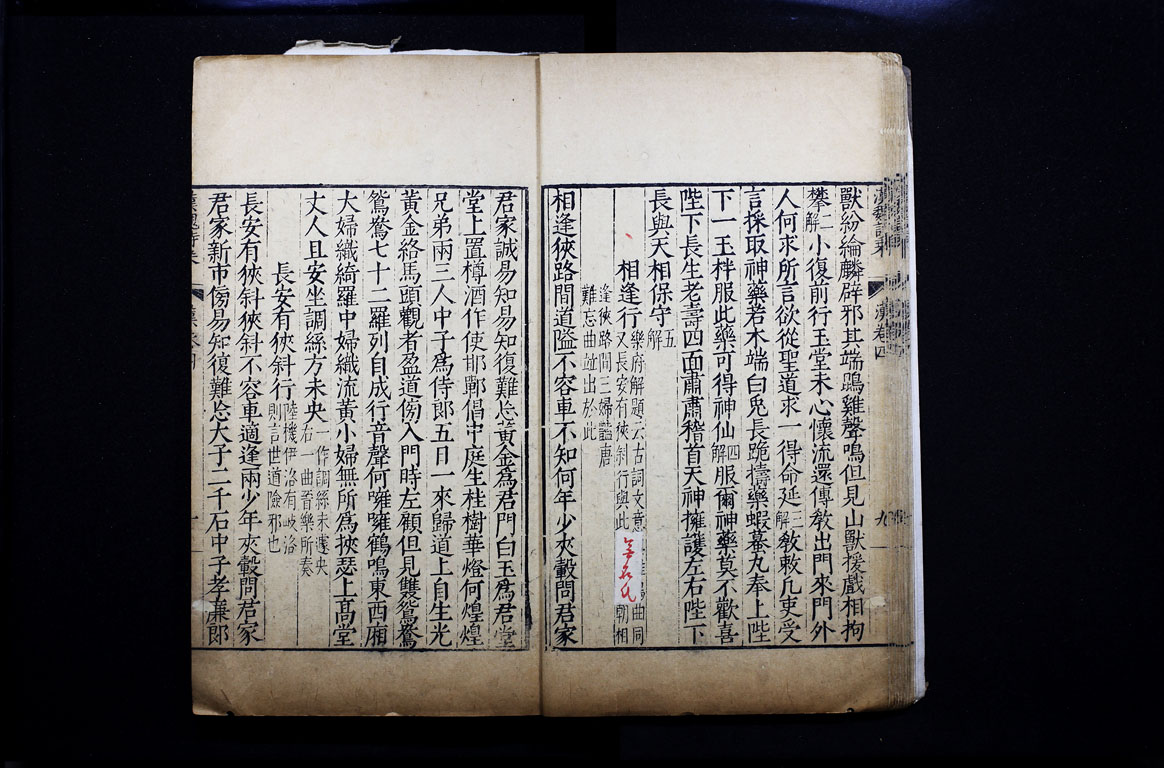 漢魏詩乘 漢卷四 九
獸紛綸麟辟邪其端鵾雞聲鳴但見山獸援戲相拘
攀二解小復前行玉堂未心懷流還傳教出門來門外
人何求所言欲從聖道求一得命延三解教敕凡吏受
言採取神藥若木端白兎長跪擣藥蝦蟇丸奉上陛
下一玉柈服此藥可得神仙四解服爾神藥莫不歡喜
陛下長生老壽四面肅肅稽首天神擁護左右陛下
長與天相保守五解
相逢行
樂府解題云古詞文意 曲同
又長安有狹斜行與此 朝相
無名氏
逢狹路間三婦豔唐
難忘曲並出於此
相逢狹路間道隘不容車不知何年少夾轂問君家
君家誠易知易知復難忘黃金爲君門白玉爲君堂
堂上置樽酒作使邯鄲倡中庭生桂樹華燈何煌煌
兄弟兩三人中子爲侍郎五日一來歸道上自生光
黃金絡馬頭觀者盈道傍入門時左顧但見雙鴛鴦
鴛鴦七十二羅列自成行音聲何噰噰鶴鳴東西廂
大婦織綺羅中婦織流黃小婦無所爲挾瑟上高堂
丈人且安坐調絲方未央
一作調絲未遽央
右一曲晉樂所奏
長安有狹斜行
陸機伊洛有岐洛
則言世道險邪也
長安有狹斜狹斜不容車適逢兩少年夾轂問君家
君家新市傍易知復難忘大子二千石中子孝廉郎